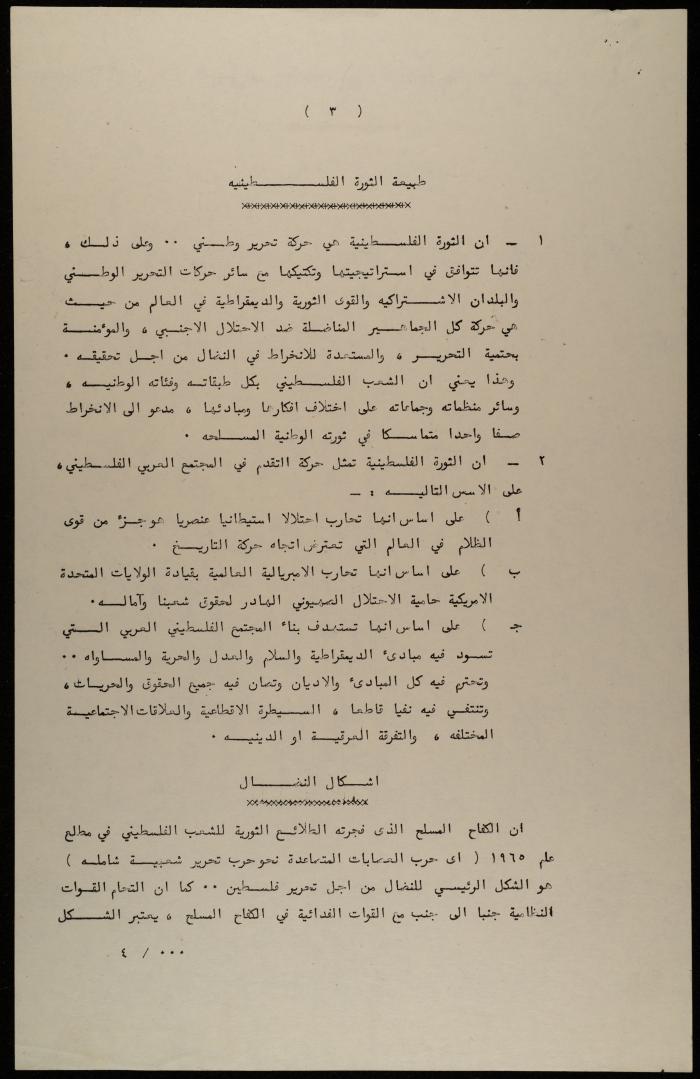 ( ٣ )
طبيعة الثورة الفلسـطينيه
×××××××××××××××××××××××
١ - ان الثورة الفلسـطينية هي حركة تحرير وطـني ٠٠ وعلى ذلـك ،
فانها تتوافق في استراتيجيتها وتكتيكها مع سائر حركات التحرير الوطـني
والبلدان الاشـتراكيه والقوى الثورية والديمقراطية في العالم من حيـث
هي حركة كل الجماهـير المناضلة ضد الاحتلال الاجنـبي ، والمؤمنـة
بحتمية التحريـر ، والمستعدة للانخراط في النضال من اجل تحقيقـه ٠
وهذا يعني ان الشعب الفلسطيني بكل طبقاتـه وفئاته الوطنيـه ،
وسائر منظماته وجماعاته على اختلاف افكارها ومبادئها ، مدعو الى الانخراط
صـفا واحدا متماسـكا في ثورته الوطنية المسـلحه ٠
٢ - ان الثورة الفلسطينية تمثل حركة التقدم في المجتمع العربي الفلسـطيني ،
على الاسس التاليـه : -
أ ) على اساس انها تحارب احتلالا استيطانيا عنصريا هو جـزءً من قوى
الظلام في العالم التي تعترض اتجاه حركة التاريـخ ٠
ب ) على اساس انها تحارب الامبريالية العالمية بقيادة الولايات المتحدة
الامريكية حامية الاحتلال الصهيوني الهادر لحقوق شعبنا وآمالـه ٠
جـ ) على اساس انها تستهدف بناء المجتمع الفلسطيني العربي الـتي
تسـود فيه مبادئ الديمقراطية والسلام والعدل والحرية والمسـاواه ٠٠
وتحترم فيه كل المبادئ والاديان وتصان فيه جميع الحقوق والحريـات ،
وتنتفـي فيه نفيا قاطعا ، السـيطرة الاقطاعية والعلاقات الاجتماعيـة
المختلفه ، والتفرقة العرقيـة او الدينيـه ٠
اشـكال النضـال
×××××××××××××××
ان الكفاح المسلح الذى فجرته الطلائـع الثورية للشعب الفلسطيني في مطلع
عام ١٩٦٥ ( اى حرب العصابات المتصاعدة نحو حرب تحرير شعبيـة شاملـه )
هو الشكل الرئيسي للنضال من اجل تحرير فلسطين ٠٠ كما ان التحام القـوات
النظامية جنبا الى جنب مع القوات الفدائية في الكفاح المسلح ، يعتبر الشـكل
٠٠٠ / ٤